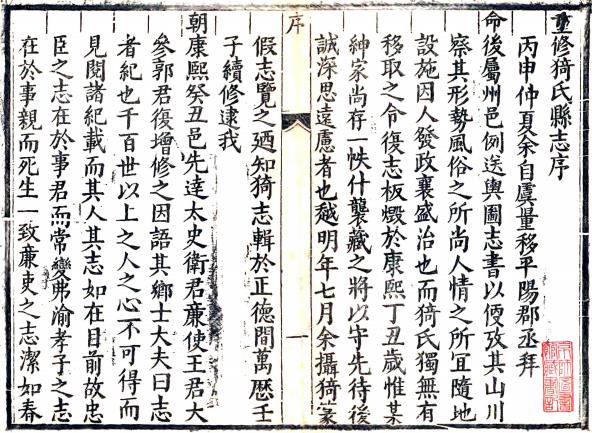 重修猗氏縣志序
丙申仲夏余自虞量移平陽郡丞拜
命後屬州邑例送輿圖志書以便攷其山川
察其形勢風俗之所尚人情之所宜隨地
設施因人發政襄盛治也而猗氏獨無有
移取之令復志板燬於康熙丁丑歲惟某
紳家尚存一帙什襲藏之將以守先待後
誠深思遠慮者也越明年七月余攝猗篆
序
一
假志覽之廼知猗志輯於正德間萬歷壬
子續修逮我
朝康熙癸丑邑先達太史衛君廉使王君大
參郭君復增修之因語其鄉士大夫曰志
者紀也千百世以上之人之心不可得而
見閱諸紀載而其人其志如在目前故忠
臣之志在於事君而常變弗渝孝子之志
在於事親而死生一致廉吏之志潔如春